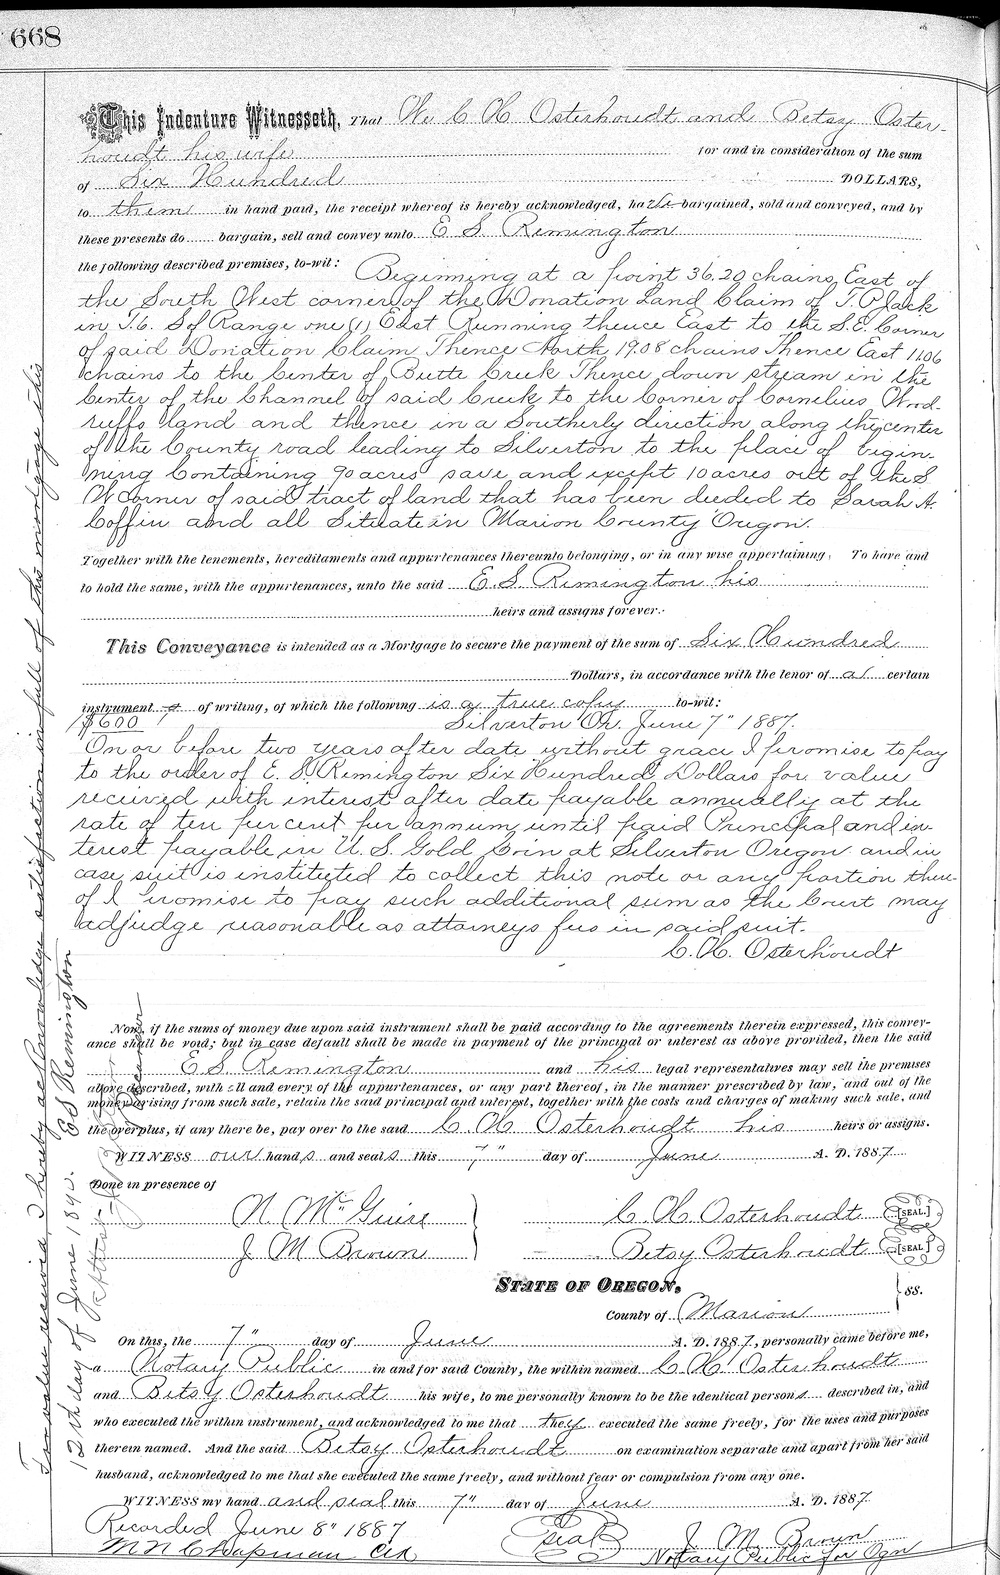 668
This Indenture Witnesseth, That We C H Osterhoudt and Betsy Oster-
houdt his wife for and in consideration of the sum
of Six Hundred DOLLARS,
to them in hand paid, the receipt whereof is hereby acknowledged, have bargained, sold and conveyed, and by
these presents do bargain, sell and convey unto E S Remington
the following described premises, to-wit: Beginning at a point 36.20 chains East of
the South West corner of the Donation Land Claim of T. P. Jack
in T.6. S of Range one (1) East Running thence East to the S.E. Corner
of said Donation Claim Thence North 19.08 chains Thence East 11.06
chains to the Center of Butte Creek Thence down stream in the
Center of the Channel of said Creek to the Corner of Cornelius Wood-
ruffs land and thence in a Southerly direction along the center
of the County road leading to Silverton to the place of begin-
ning Containing 90 acres save and except 10 acres out of the S
W Corner of said tract of land that has been deeded to Sarah A.
Coffin and all Situate in Marion County Oregon.
Together with the tenements, hereditaments and appurtenances thereunto belonging, or in any wise appertaining, To have and
to hold the same, with the appurtenances, unto the said E. S. Remington his
heirs and assigns forever.
This Conveyance is intended as a Mortgage to secure the payment of the sum of Six Hundred
Dollars, in accordance with the tenor of a certain
instrument of writing, of which the following is a true copy to-wit:
$600 Silverton Or. June 7" 1887.
On or before two years after date without grace I promise to pay
to the order of E. S. Remington Six Hundred Dollars for value
received with interest after date payable annually at the
rate of ten per cent per annum until paid Principal and in-
terest payable in U. S. Gold Coin at Silverton Oregon and in
case suit is instituted to collect this note or any portion there-
of I Promise to pay such additional sum as the Court may
adjudge reasonable as attorneys fees in said suit.
C. H. Osterhoudt
Now, if the sums of money due upon said instrument shall be paid according to the agreements therein expressed, this convey-
ance shall be void; but in case default shall be made in payment of the principal or interest as above provided, then the said
E. S. Remington and his legal representatives may sell the premises
above described, with all and every of the appurtenances, or any part thereof, in the manner prescribed by law, and out of the
money arising from such sale, retain the said principal and interest, together with the costs and charges of making such sale, and
the overplus, if any there be, pay over to the said C. H Osterhoudt his heirs or assigns.
WITNESS our hands and seals this 7" day of June A. D. 1887.
Done in presence of
N. McGuire C H Osterhoudt [SEAL.]
J M Brown Betsy Osterhoudt [SEAL]
STATE OF OREGON,
County of Marion ss.
On this, the 7" day of June A. D. 1887, personally came before me,
a Notary Public in and for said County, the within named C H Osterhoudt
and Betsy Osterhoudt his wife, to me personally known to be the identical persons described in, and
who executed the within instrument, and acknowledged to me that they executed the same freely, for the uses and purposes
therein named. And the said Betsy Osterhoudt on examination separate and apart from her said
husband, acknowledged to me that she executed the same freely, and without fear or compulsion from any one.
WITNESS my hand and seal this 7" day of June A. D. 1887
Recorded June 8" 1887 Seal J. M. Brown
M N Chapman Clk Notary Public for Ogn
For value received, I hereby acknowledge satisfaction in full of this mortgage this
12th day of June 1890. E S Remington
Attest